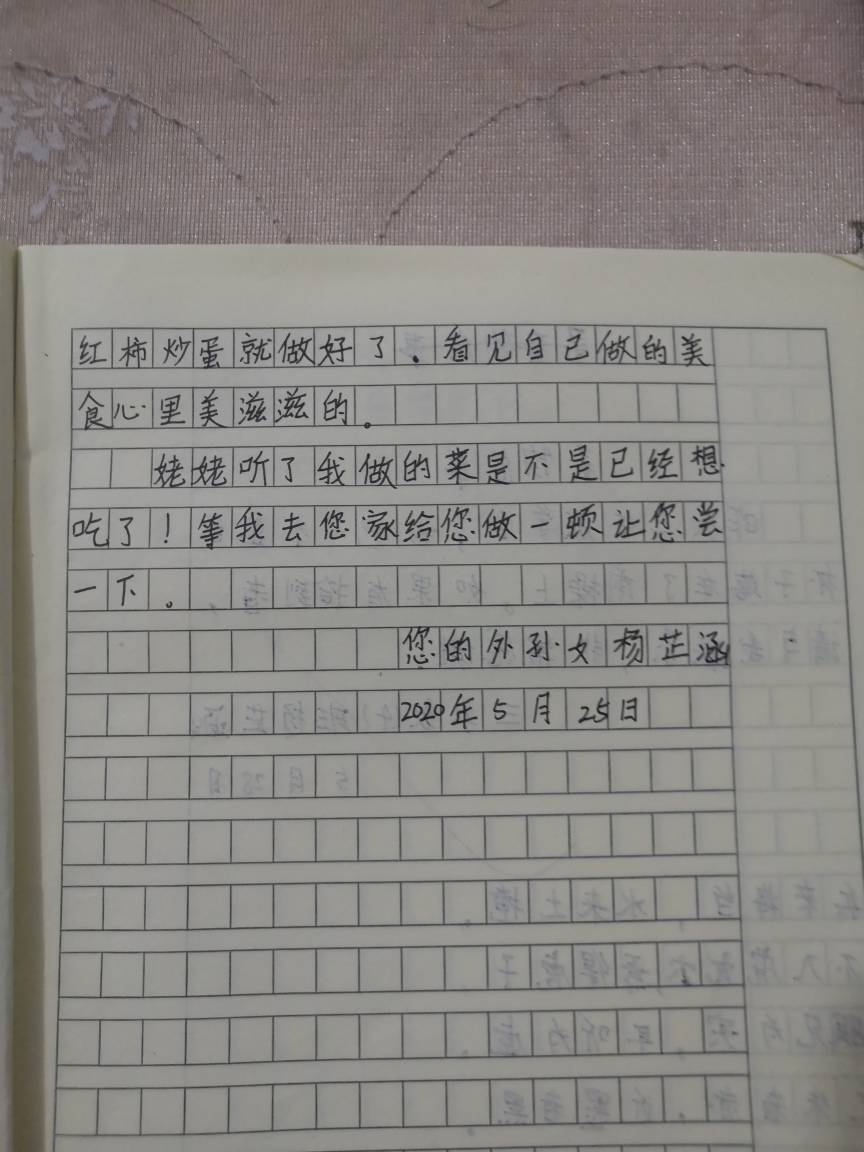 红柿炒蛋就做好了。看见自己做的美
食心里美滋滋的。
姥姥听了我做的菜是不是已经想
吃了！等我去您家给您做一顿让您尝
一下。
您的外孙女杨芷涵
2020年5月25日